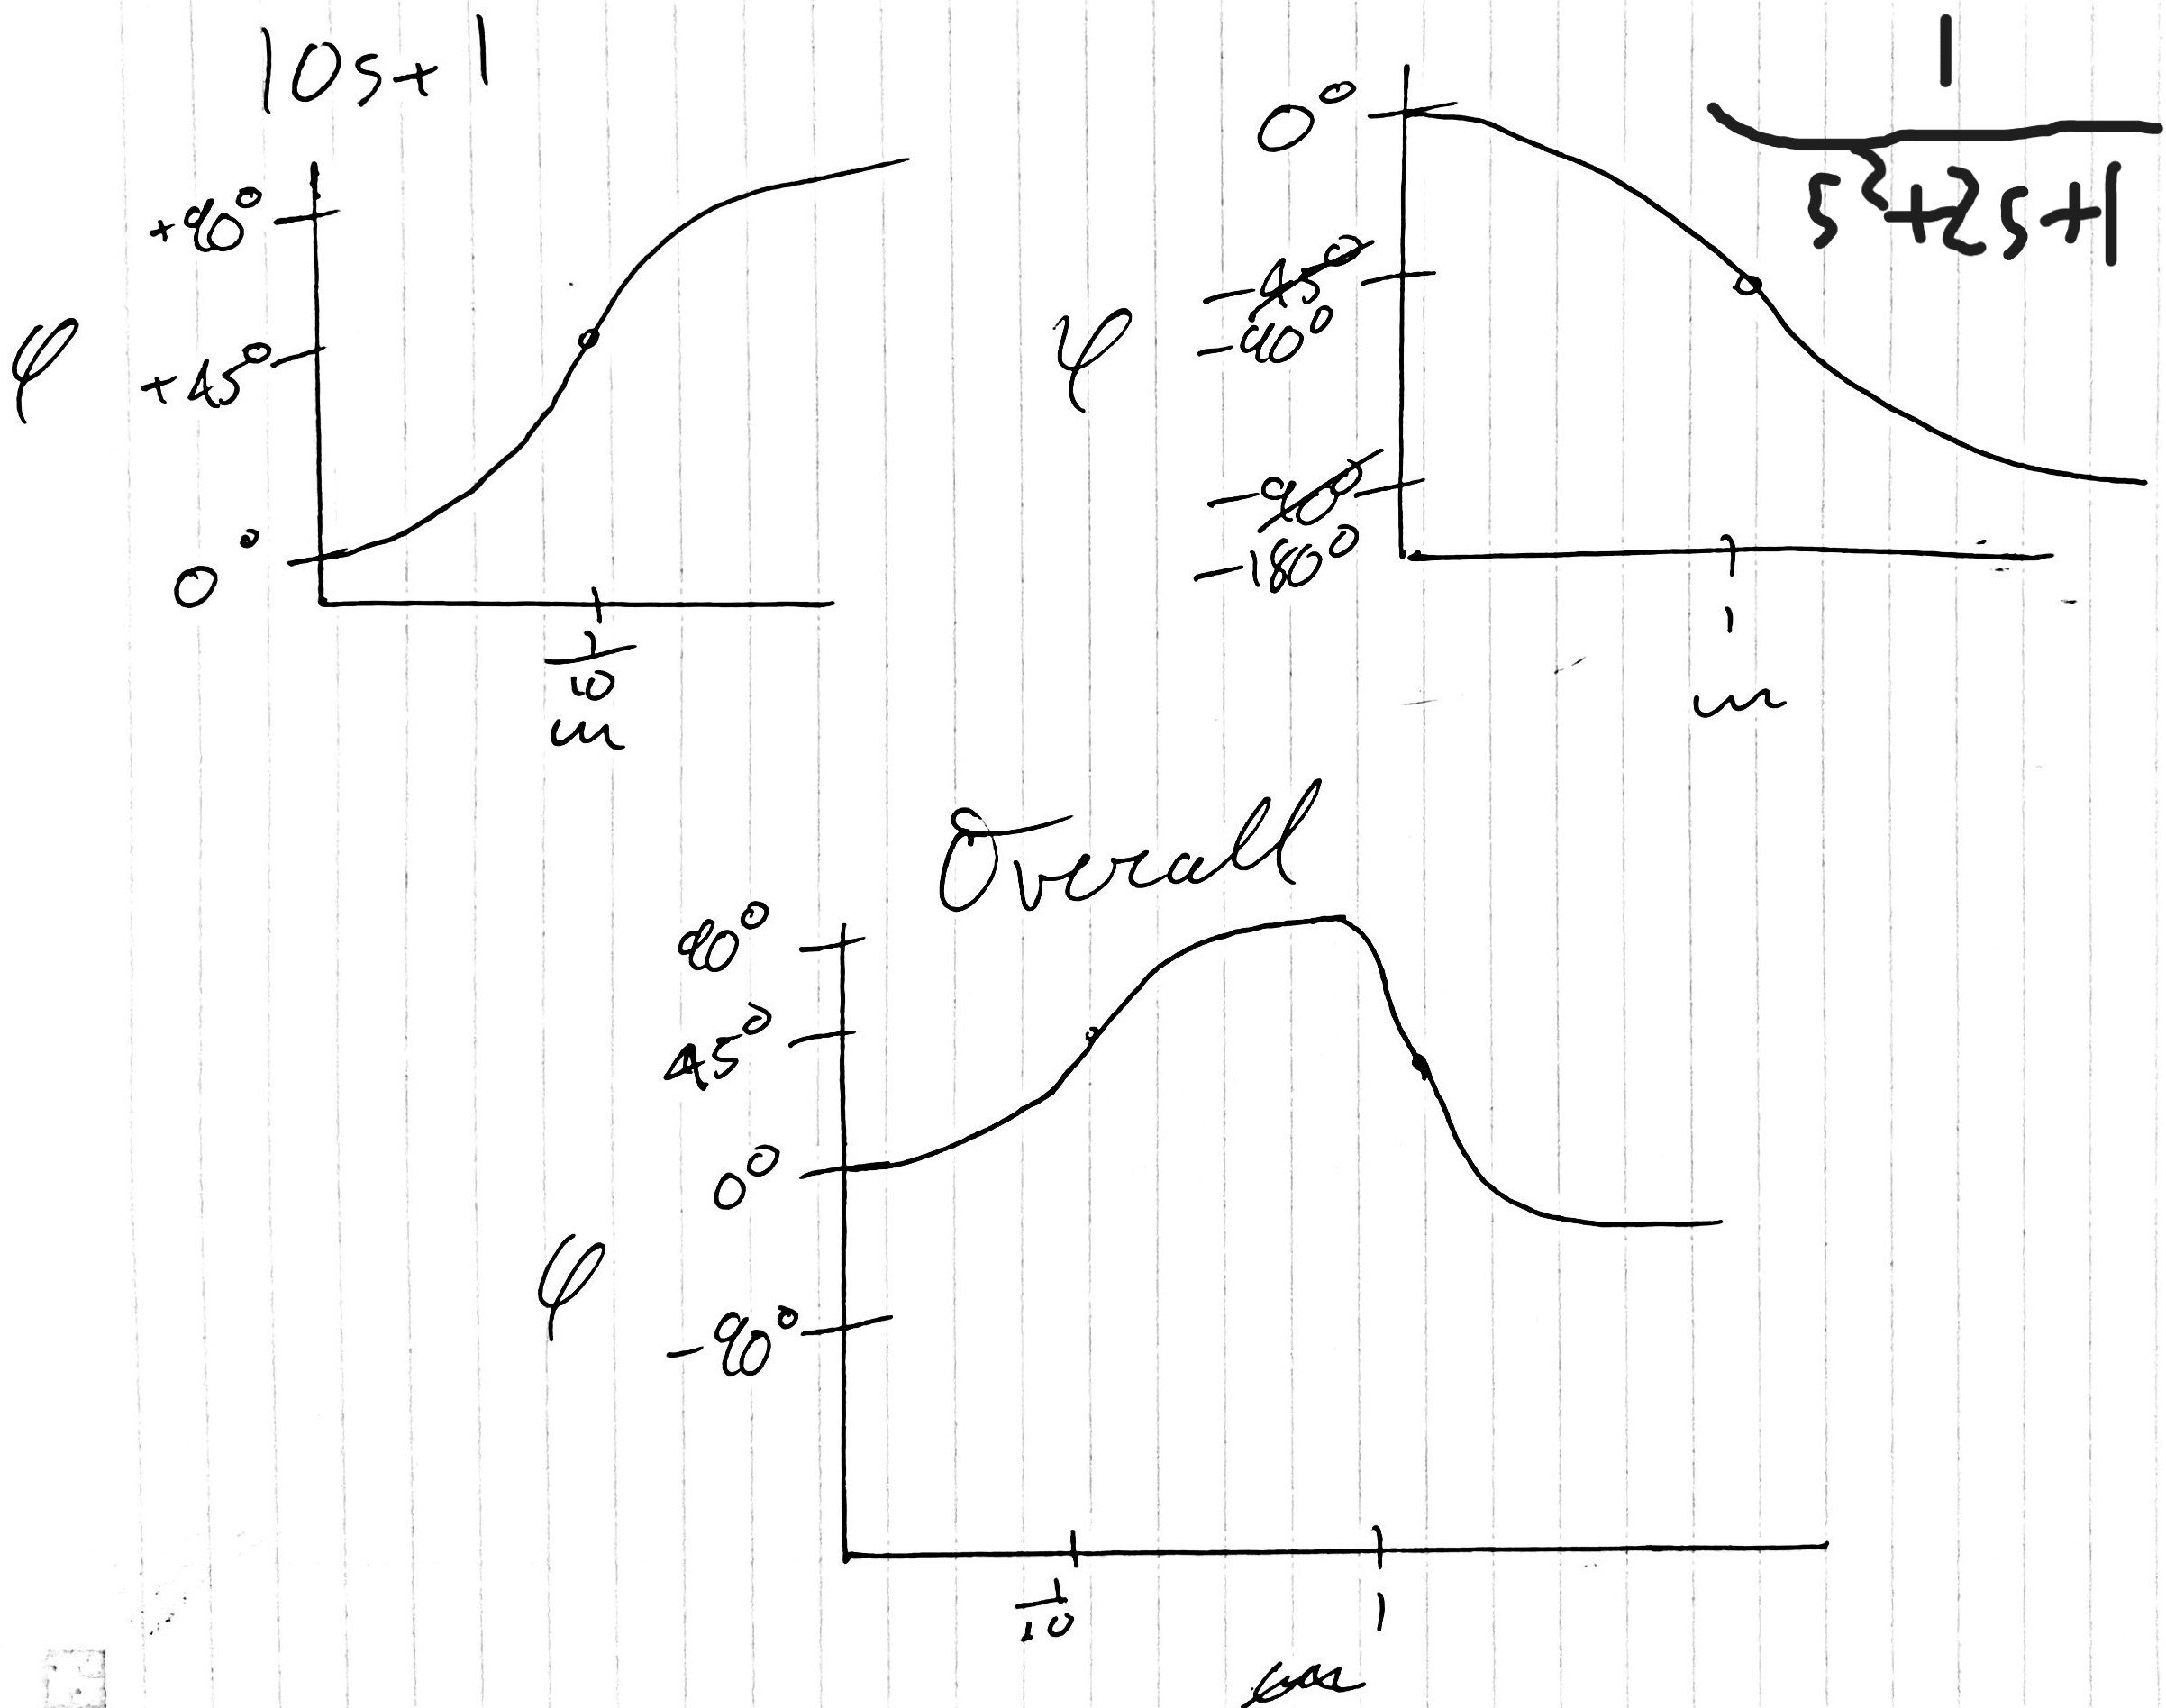 10s+1
+90°
φ
+45°
0°
1/10
ω
1
s²+2s+1
0°
-45°
-90°
φ
-90°
-180°
1
ω
Overall
90°
45°
0°
φ
-90°
1/10
1
ω